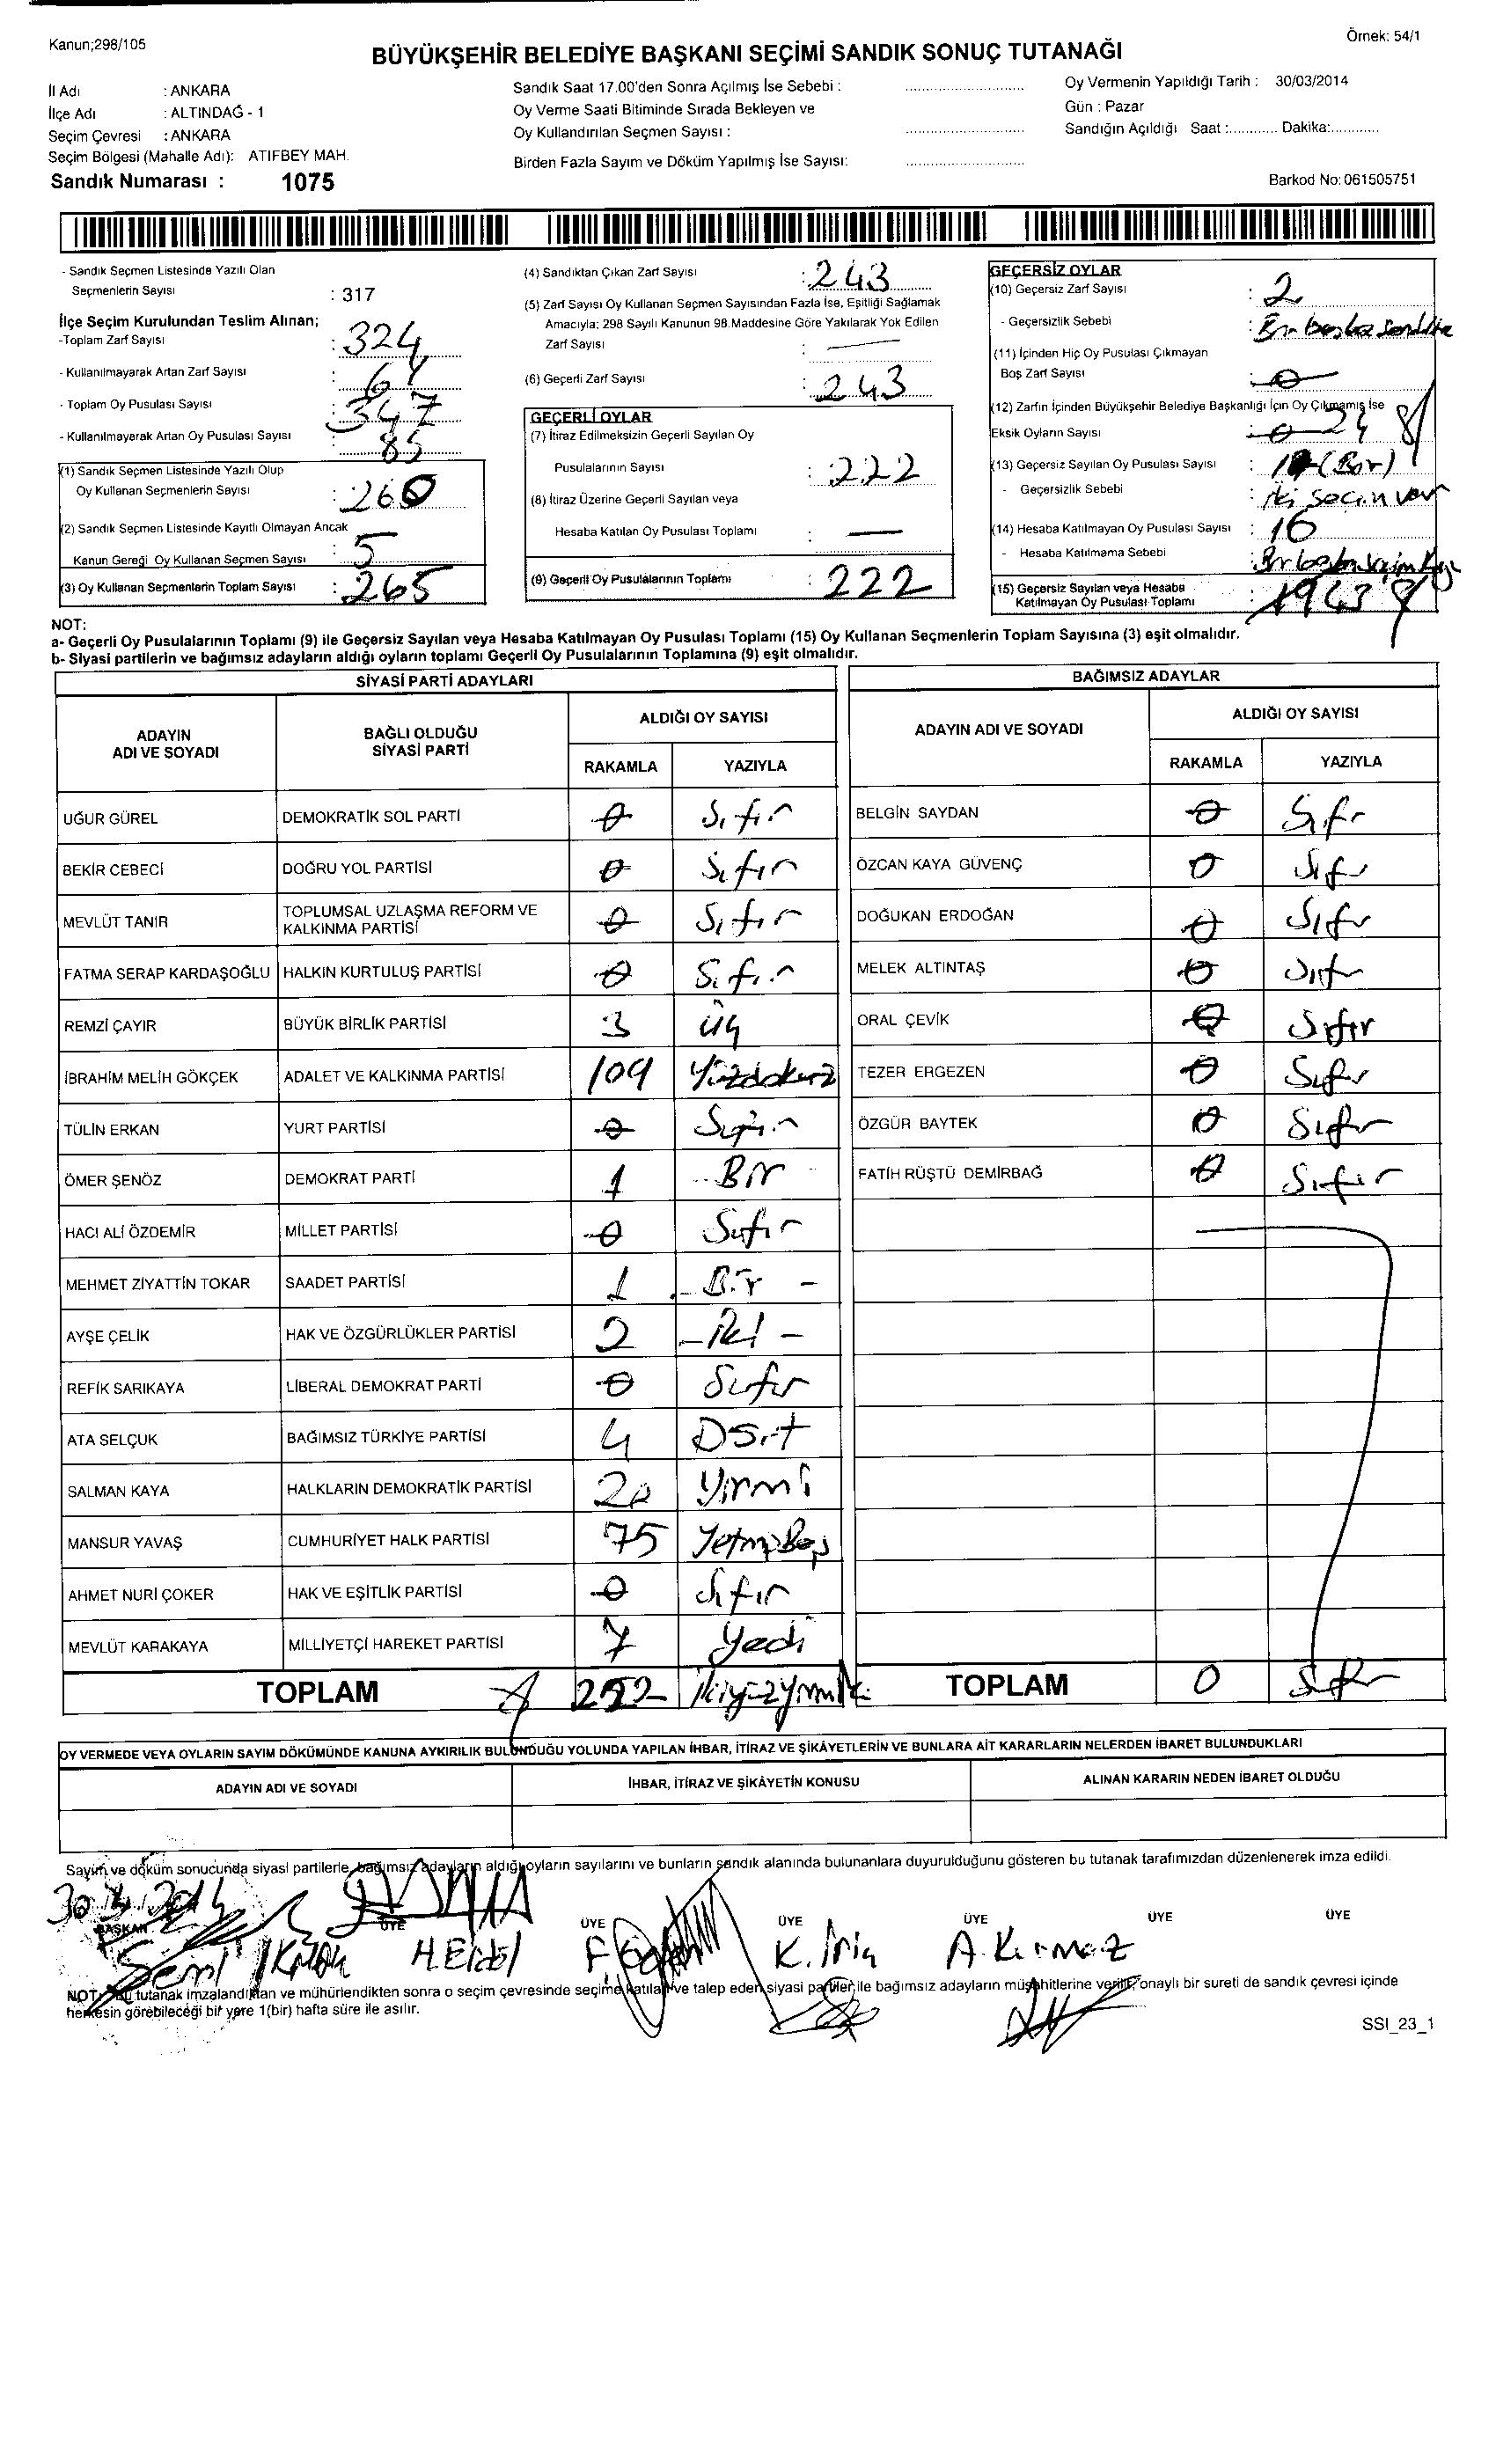 Kanun;298/105
Örnek: 54/1
BÜYÜKŞEHİR BELEDİYE BAŞKANI SEÇİMİ SANDIK SONUÇ TUTANAĞI
İl Adı : ANKARA
İlçe Adı : ALTINDAĞ - 1
Seçim Çevresi : ANKARA
Seçim Bölgesi (Mahalle Adı): ATIFBEY MAH.
Sandık Numarası : 1075
Sandık Saat 17.00'den Sonra Açılmış İse Sebebi :
Oy Verme Saati Bitiminde Sırada Bekleyen ve
Oy Kullandırılan Seçmen Sayısı :
Birden Fazla Sayım ve Döküm Yapılmış İse Sayısı:
Oy Vermenin Yapıldığı Tarih : 30/03/2014
Gün : Pazar
Sandığın Açıldığı Saat :............ Dakika:............
Barkod No: 061505751
- Sandık Seçmen Listesinde Yazılı Olan
Seçmenlerin Sayısı : 317
İlçe Seçim Kurulundan Teslim Alınan;
-Toplam Zarf Sayısı : 324
- Kullanılmayarak Artan Zarf Sayısı :
- Toplam Oy Pusulası Sayısı : 347
- Kullanılmayarak Artan Oy Pusulası Sayısı : 85
(1) Sandık Seçmen Listesinde Yazılı Olup
Oy Kullanan Seçmenlerin Sayısı : 260
(2) Sandık Seçmen Listesinde Kayıtlı Olmayan Ancak
Kanun Gereği Oy Kullanan Seçmen Sayısı : 5
(3) Oy Kullanan Seçmenlerin Toplam Sayısı : 265
(4) Sandıktan Çıkan Zarf Sayısı : 243
(5) Zarf Sayısı Oy Kullanan Seçmen Sayısından Fazla İse, Eşitliği Sağlamak
Amacıyla; 298 Sayılı Kanunun 98.Maddesine Göre Yakılarak Yok Edilen
Zarf Sayısı : —
(6) Geçerli Zarf Sayısı : 243
GEÇERLİ OYLAR
(7) İtiraz Edilmeksizin Geçerli Sayılan Oy
Pusulalarının Sayısı : 222
(8) İtiraz Üzerine Geçerli Sayılan veya
Hesaba Katılan Oy Pusulası Toplamı : —
(9) Geçerli Oy Pusulalarının Toplamı : 222
GEÇERSİZ OYLAR
(10) Geçersiz Zarf Sayısı : 2
- Geçersizlik Sebebi :
(11) İçinden Hiç Oy Pusulası Çıkmayan
Boş Zarf Sayısı : 0
(12) Zarfın İçinden Büyükşehir Belediye Başkanlığı İçin Oy Çıkmamış İse
Eksik Oyların Sayısı :
(13) Geçersiz Sayılan Oy Pusulası Sayısı : (Bir)
- Geçersizlik Sebebi : iki seçim var
(14) Hesaba Katılmayan Oy Pusulası Sayısı : 16
- Hesaba Katılmama Sebebi :
(15) Geçersiz Sayılan veya Hesaba
Katılmayan Oy Pusulası Toplamı :
NOT:
a- Geçerli Oy Pusulalarının Toplamı (9) ile Geçersiz Sayılan veya Hesaba Katılmayan Oy Pusulası Toplamı (15) Oy Kullanan Seçmenlerin Toplam Sayısına (3) eşit olmalıdır.
b- Siyasi partilerin ve bağımsız adayların aldığı oyların toplamı Geçerli Oy Pusulalarının Toplamına (9) eşit olmalıdır.
SİYASİ PARTİ ADAYLARI
ADAYIN ADI VE SOYADI BAĞLI OLDUĞU SİYASİ PARTİ ALDIĞI OY SAYISI
RAKAMLA YAZIYLA
UĞUR GÜREL DEMOKRATİK SOL PARTİ 0 Sıfır
BEKİR CEBECİ DOĞRU YOL PARTİSİ 0 Sıfır
MEVLÜT TANIR TOPLUMSAL UZLAŞMA REFORM VE KALKINMA PARTİSİ 0 Sıfır
FATMA SERAP KARDAŞOĞLU HALKIN KURTULUŞ PARTİSİ 0 Sıfır
REMZİ ÇAYIR BÜYÜK BİRLİK PARTİSİ 3 üç
İBRAHİM MELİH GÖKÇEK ADALET VE KALKINMA PARTİSİ 109 Yüzdokuz
TÜLİN ERKAN YURT PARTİSİ 0 Sıfır
ÖMER ŞENÖZ DEMOKRAT PARTİ 1 Bir
HACI ALİ ÖZDEMİR MİLLET PARTİSİ 0 Sıfır
MEHMET ZİYATTİN TOKAR SAADET PARTİSİ 1 - Bir -
AYŞE ÇELİK HAK VE ÖZGÜRLÜKLER PARTİSİ 2 - iki -
REFİK SARIKAYA LİBERAL DEMOKRAT PARTİ 0 Sıfır
ATA SELÇUK BAĞIMSIZ TÜRKİYE PARTİSİ 4 Dört
SALMAN KAYA HALKLARIN DEMOKRATİK PARTİSİ 20 Yirmi
MANSUR YAVAŞ CUMHURİYET HALK PARTİSİ 75 Yetmişbeş
AHMET NURİ ÇOKER HAK VE EŞİTLİK PARTİSİ 0 Sıfır
MEVLÜT KARAKAYA MİLLİYETÇİ HAREKET PARTİSİ 7 Yedi
TOPLAM 222 ikiyüzyirmiiki
BAĞIMSIZ ADAYLAR
ADAYIN ADI VE SOYADI ALDIĞI OY SAYISI
RAKAMLA YAZIYLA
BELGİN SAYDAN 0 Sıfır
ÖZCAN KAYA GÜVENÇ 0 Sıfır
DOĞUKAN ERDOĞAN 0 Sıfır
MELEK ALTINTAŞ 0 Sıfır
ORAL ÇEVİK 0 Sıfır
TEZER ERGEZEN 0 Sıfır
ÖZGÜR BAYTEK 0 Sıfır
FATİH RÜŞTÜ DEMİRBAĞ 0 Sıfır
TOPLAM 0 Sıfır
OY VERMEDE VEYA OYLARIN SAYIM DÖKÜMÜNDE KANUNA AYKIRILIK BULUNDUĞU YOLUNDA YAPILAN İHBAR, İTİRAZ VE ŞİKÂYETLERİN VE BUNLARA AİT KARARLARIN NELERDEN İBARET BULUNDUKLARI
ADAYIN ADI VE SOYADI İHBAR, İTİRAZ VE ŞİKÂYETİN KONUSU ALINAN KARARIN NEDEN İBARET OLDUĞU
Sayım ve döküm sonucunda siyasi partilerle bağımsız adayların aldığı oyların sayılarını ve bunların sandık alanında bulunanlara duyurulduğunu gösteren bu tutanak tarafımızdan düzenlenerek imza edildi.
BAŞKAN ÜYE ÜYE ÜYE ÜYE ÜYE ÜYE
A. Kırmaz
NOT: Bu tutanak imzalandıktan ve mühürlendikten sonra o seçim çevresinde seçime katılan ve talep eden siyasi partiler ile bağımsız adayların müşahitlerine verilir, onaylı bir sureti de sandık çevresi içinde
herkesin görebileceği bir yere 1(bir) hafta süre ile asılır.
SSI_23_1